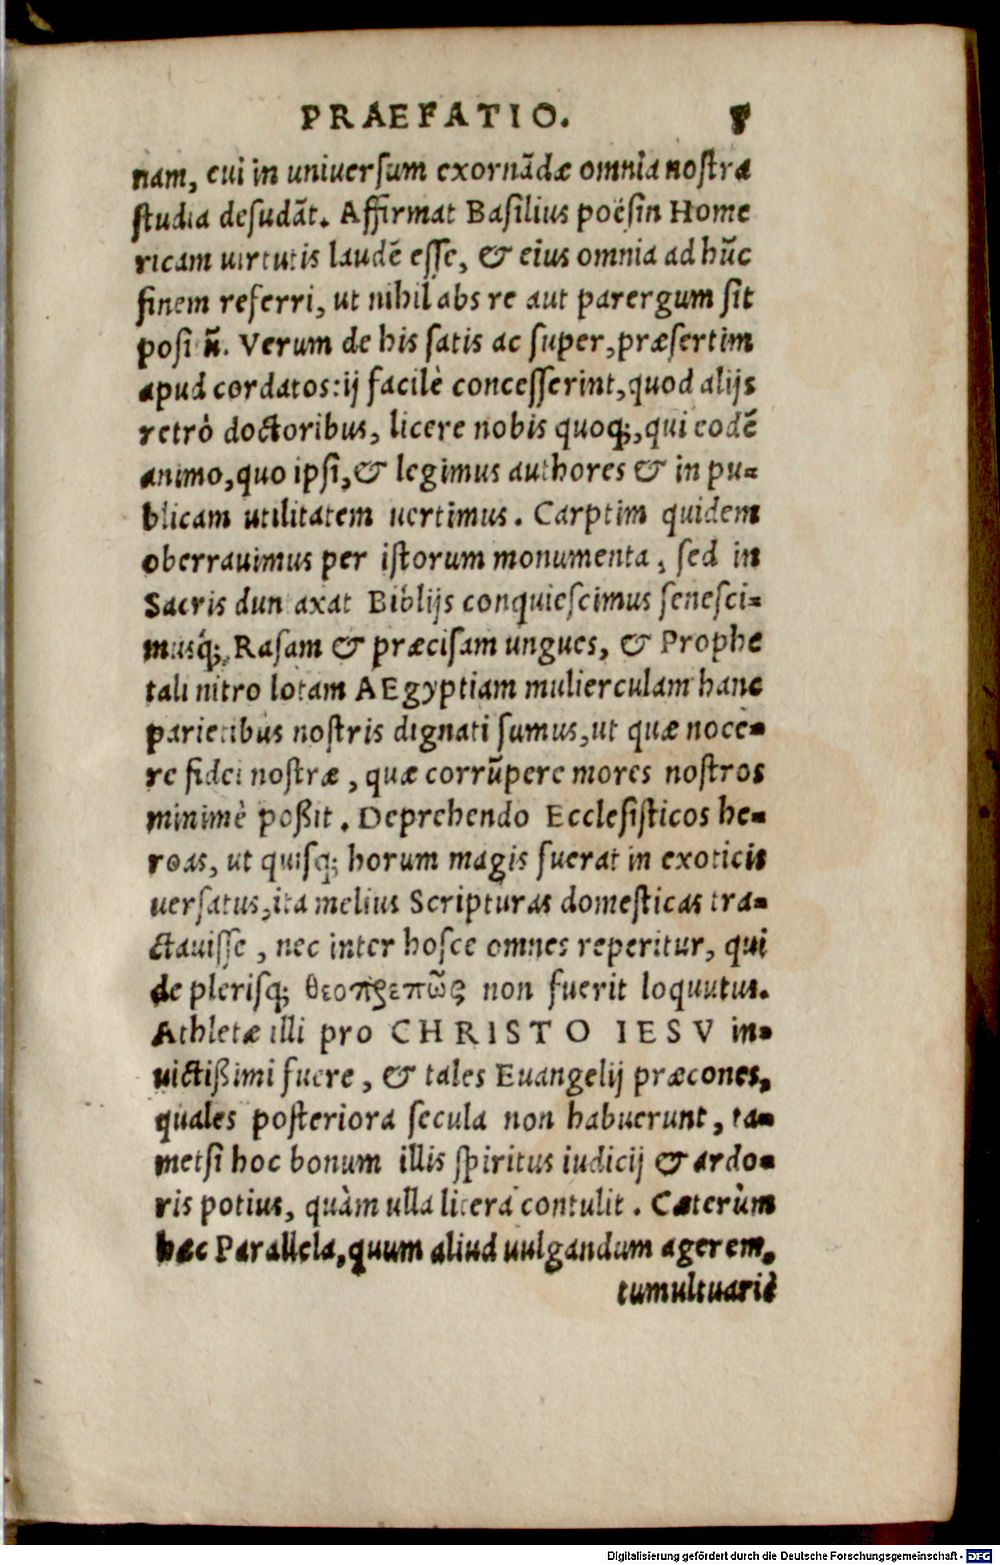 PRAEFATIO. 5
nam, cui in uniuersum exornãdæ omnia nostra
studia desudãt. Affirmat Basilius poësin Home
ricam uirtutis laudẽ esse, & eius omnia ad hũc
finem referri, ut nihil abs re aut parergum sit
posi ñ. Verum de his satis ac super, præsertim
apud cordatos: ij facilè concesserint, quod alijs
retrò doctoribus, licere nobis quoq;, qui eodẽ
animo, quo ipsi, & legimus authores & in pu-
blicam utilitatem uertimus. Carptim quidem
oberrauimus per istorum monumenta, sed in
Sacris duntaxat Biblijs conquiescimus senesci-
musq́;. Rasam & præcisam ungues, & Prophe
tali nitro lotam AEgyptiam mulierculam hanc
parietibus nostris dignati sumus, ut quæ noce-
re fidei nostræ, quæ corrũpere mores nostros
minimè poßit. Deprehendo Ecclesisticos he-
roas, ut quisq; horum magis fuerat in exoticis
uersatus, ita melius Scripturas domesticas tra-
ctauisse, nec inter hosce omnes reperitur, qui
de plerisq; θεοπρεπῶς non fuerit loquutus.
Athletæ illi pro CHRISTO IESV in-
uictißimi fuere, & tales Euangelij præcones,
quales posteriora secula non habuerunt, ta-
metsi hoc bonum illis spiritus iudicij & ardo-
ris potius, quàm ulla litera contulit. Cæterùm
hæc Parallela, quum aliud uulgandum agerem,
tumultuariè
Digitalisierung gefördert durch die Deutsche Forschungsgemeinschaft - DFG